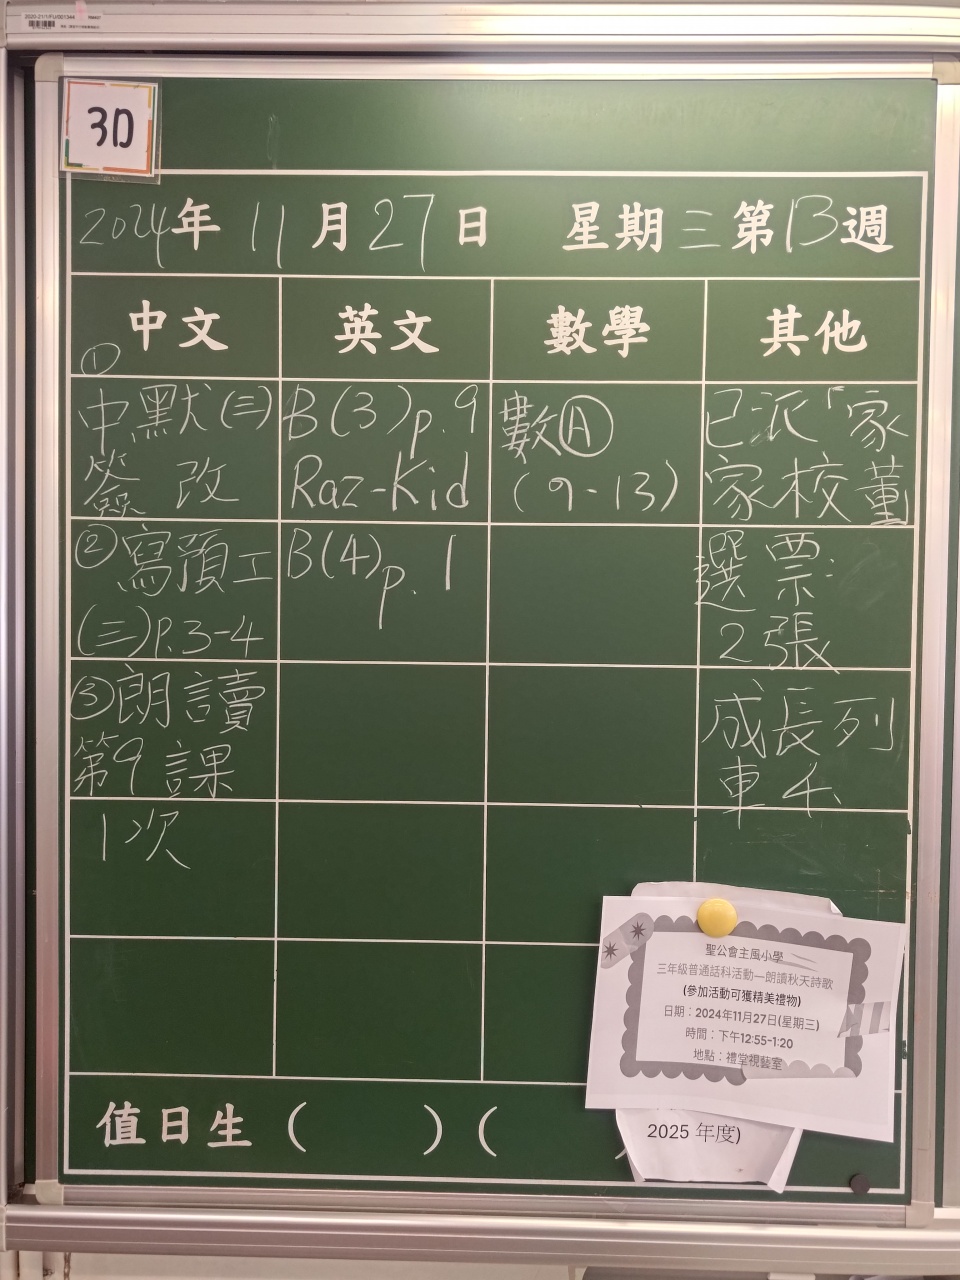 2020-21/1/FU/001344
3D
2024年 11月27日 星期三第13週
中文 英文 數學 其他
①
中默(三)
簽改
②寫預工
(三)P.3-4
③朗讀
第9課
1次
B(3)p.9
Raz-Kid
B(4)p.1
數Ⓐ
(9-13)
已派「家
家校董
選票
2張
成長列
車
值日生( )(
聖公會主風小學
三年級普通話科活動—朗讀秋天詩歌
(參加活動可獲精美禮物)
日期：2024年11月27日(星期三)
時間：下午12:55-1:20
地點：禮堂視藝室
2025 年度)